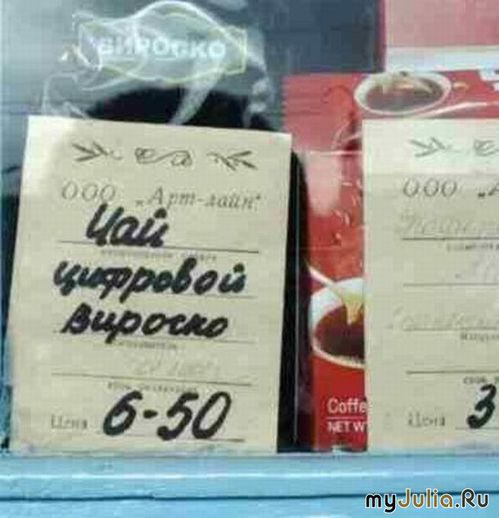 ВИРОСКО
ООО „Арт-лайн"
Чай
цифровой
вироско
Цена 6-50
ООО
Цена 3
Coffe
NET W
myJulia.Ru